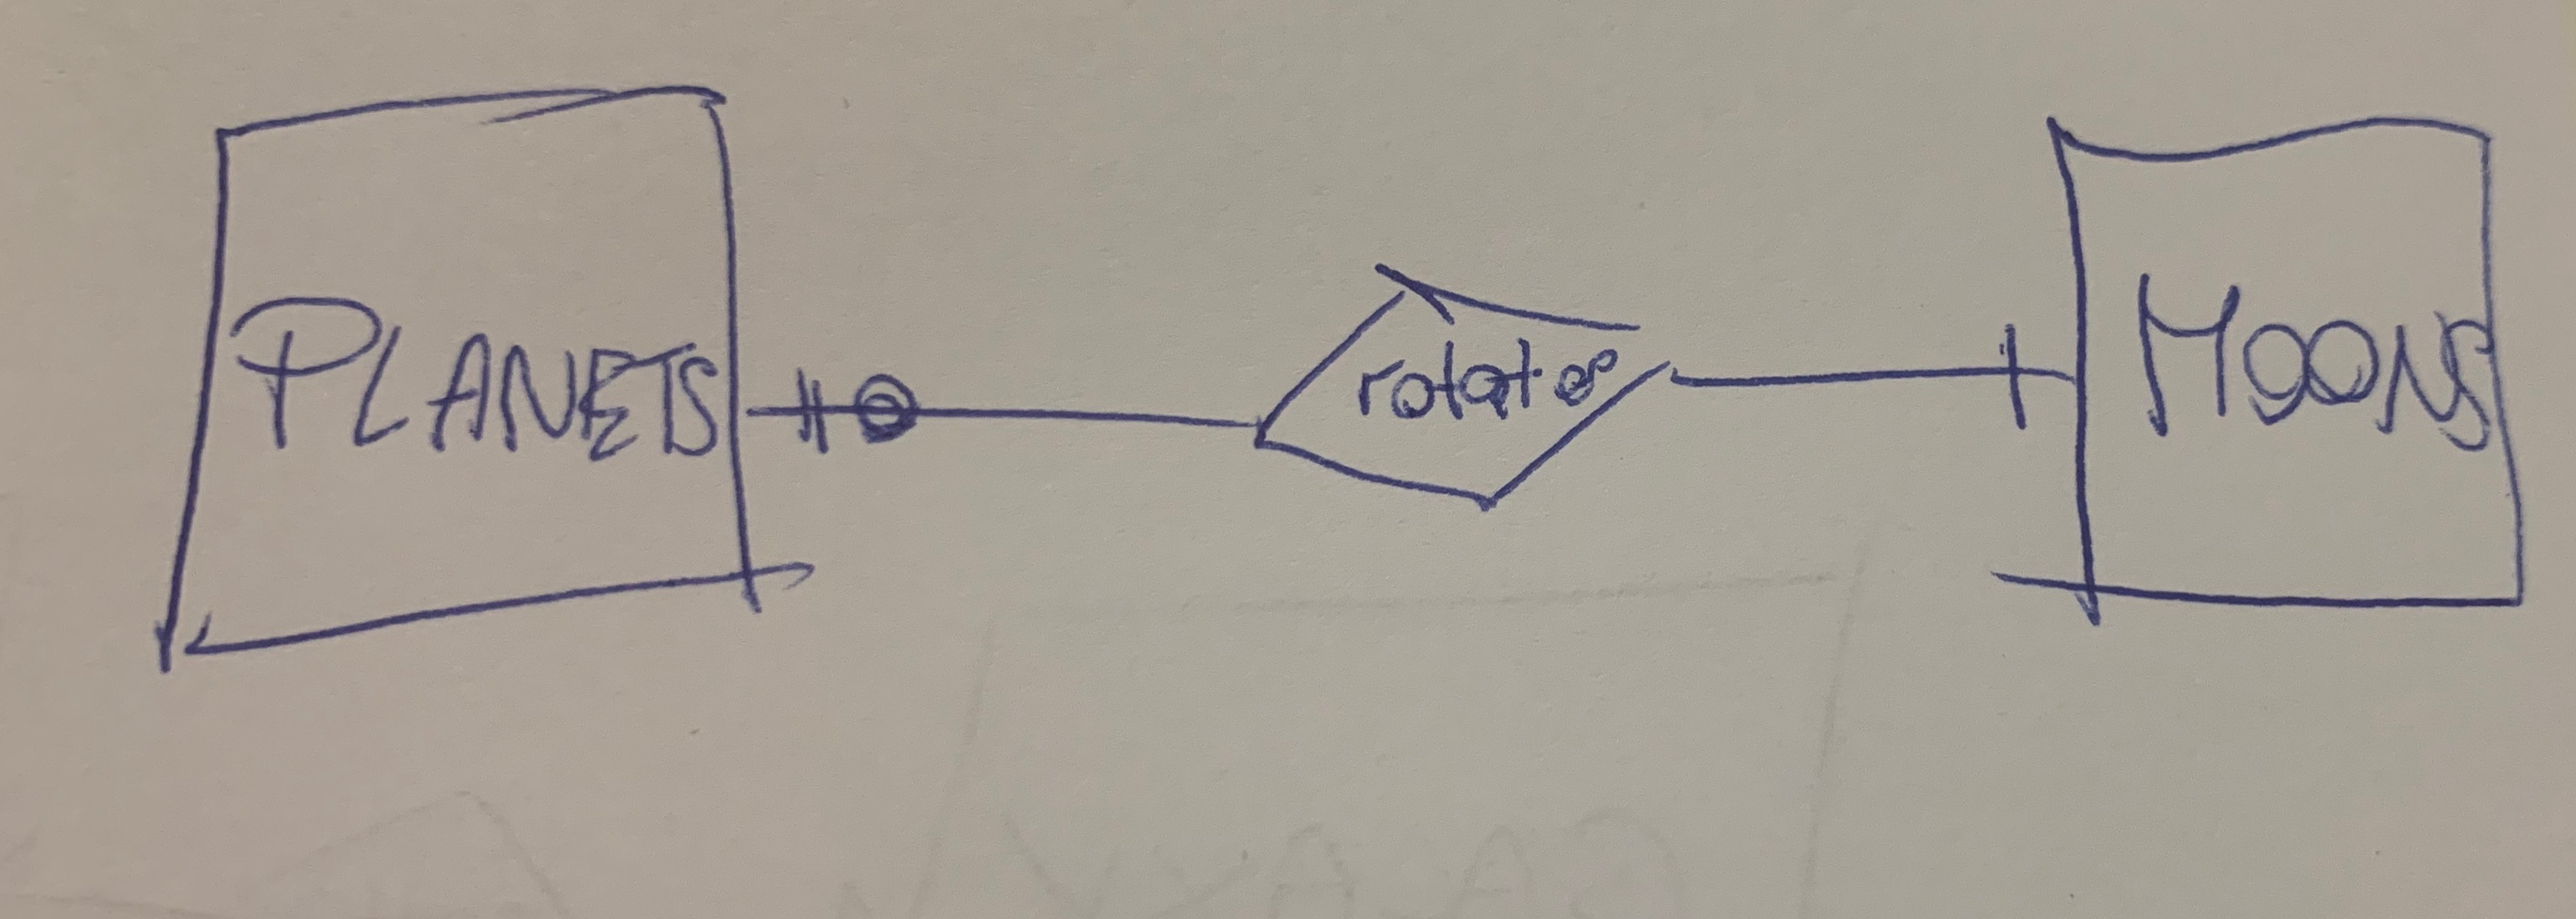 PLANETS
rotates
MOONS